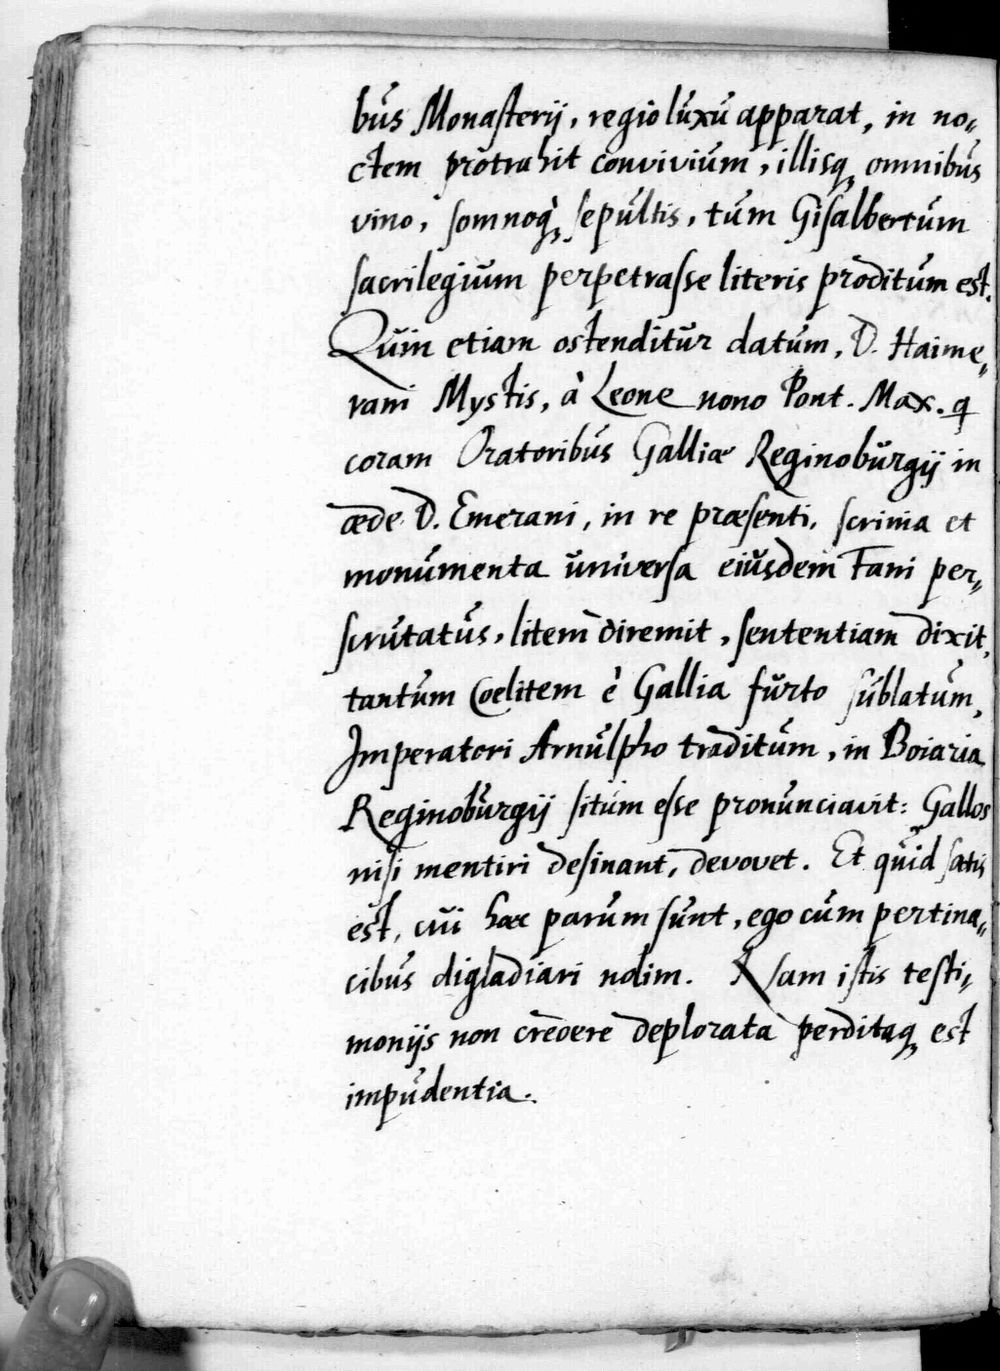 bus Monasterij, regio luxu apparat, in no„
ctem protrahit convivium, illisq́ omnibus
vino, somnoq́ sepultis, tum Gisalbertum
sacrilegium perpetrasse literis proditum est.
Quin etiam ostenditur datum, D. Haime„
rani Mystis, à Leone nono Pont. Max. q
coram Oratoribus Galliæ Reginoburgij in
æde D. Emerani, in re præsenti, scrinia et
monumenta universa eiusdem Fani per„
scrutatus, litem diremit, sententiam dixit,
tantum Coelitem è Gallia furto sublatum,
Imperatori Arnulpho traditum, in Boiaria
Reginoburgij situm esse pronunciavit: Gallos
nisi mentiri desinant, devovet. Et quid satis
est, cui hæc parum sunt, ego cum pertina„
cibus digladiari nolim. istis testi„
monijs non credere deplorata perditaq́ est
impudentia.